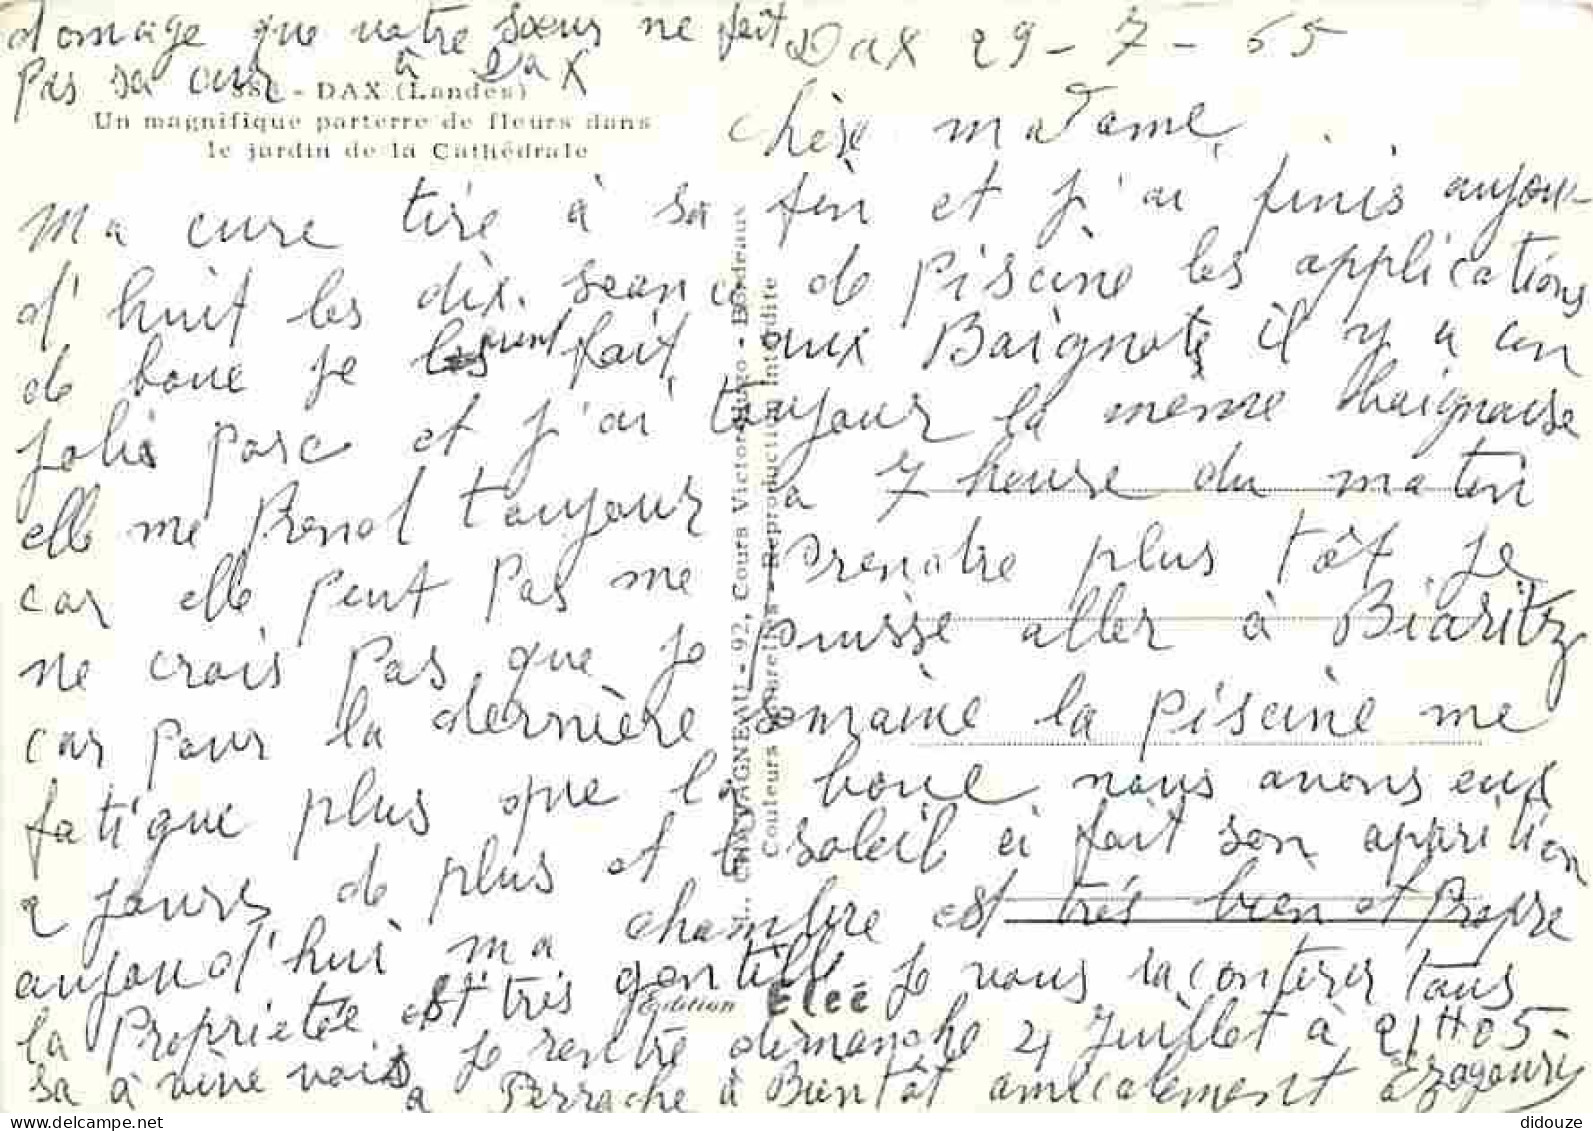 domage que votre sœur ne fait
pas sa cure à Dax
DAX (Landes)
Un magnifique parterre de fleurs dans
le jardin de la Cathédrale
Dax 29-7-65
Chère madame
Ma cure tire à sa fin et j'ai finis aujou-
d'huit les dix seance de piscine les applications
de boue je les fait aux Baignots il y a un
jolis parc et j'ai toujour la même baigneuse
elle me prend toujour a 7 heure du matin
car elle peut pas me prendre plus tôt. Je
ne crois pas que je puisse aller à Biaritz
car pour la dernière semaine la piscine me
fatigue plus que la boue nous avons eux
2 jours de plus et le soleil ai fait son apprition
aujoud'hui ma chambre est très bien et propre
la propriétée est très gentille je vous raconterer tous
sa à vive vois je rentre dimanche 4 Juillet à 21H05-
a Perrache à Bientôt amicalement
L. CHATAGNEAU - 92, Cours Victor-Hugo - Bordeaux
Couleurs Naturelles - Reproduction Interdite
Edition Elcé
didouze